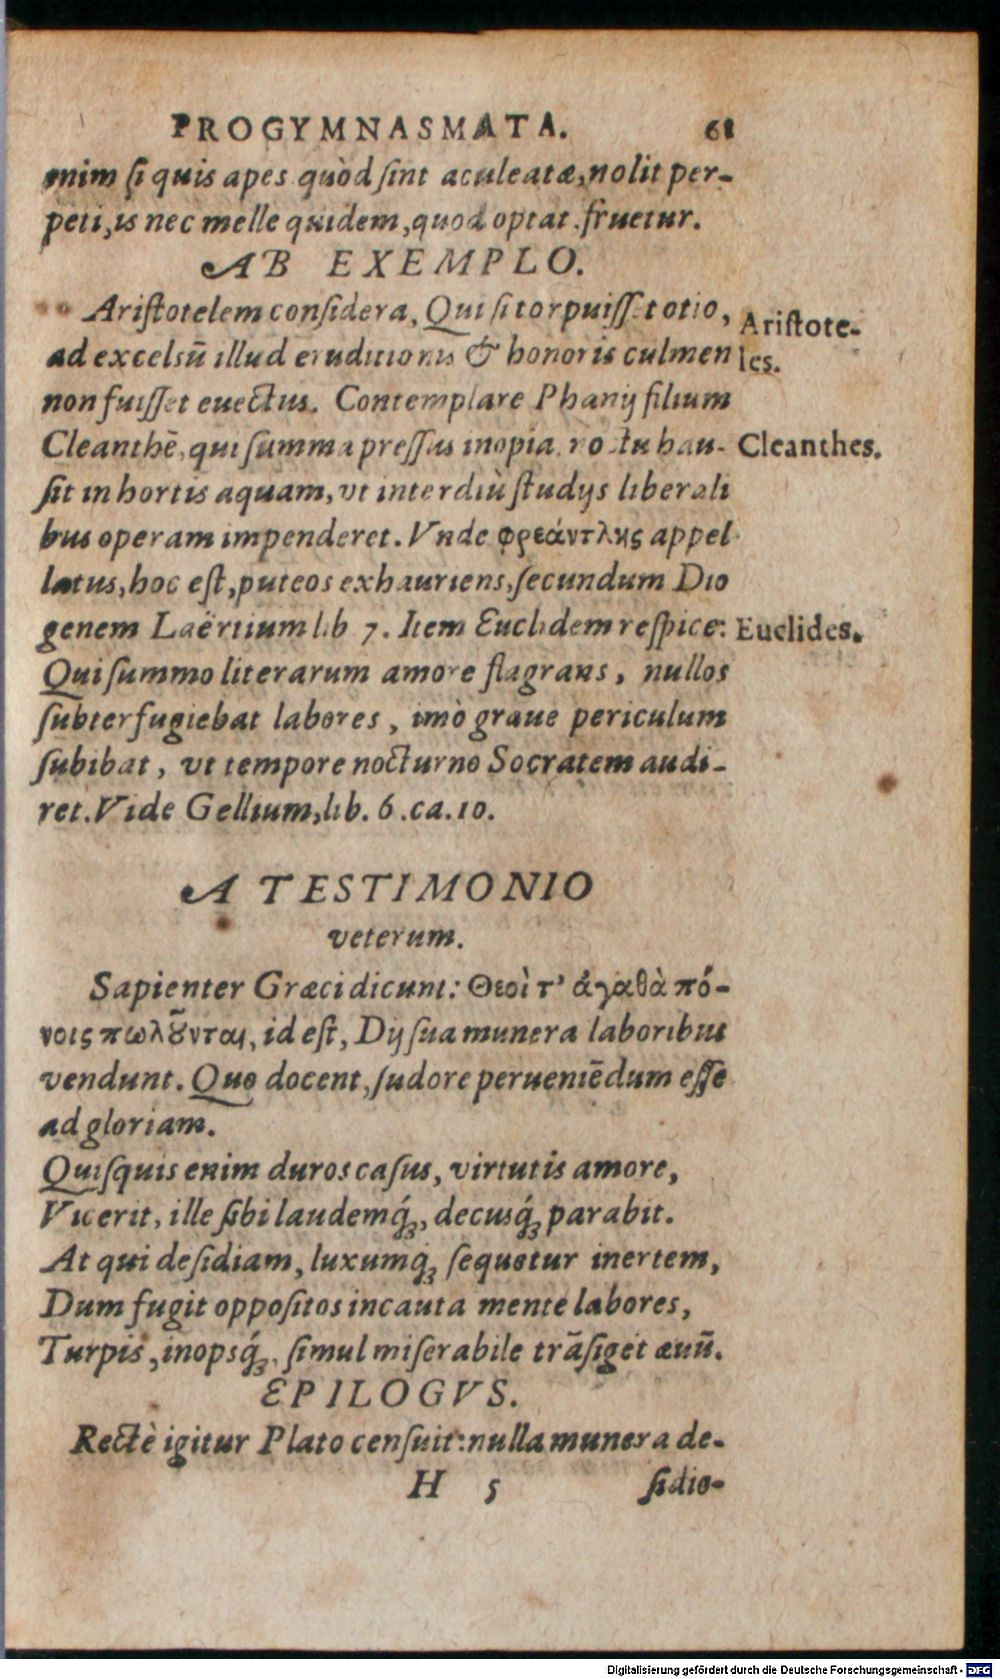 PROGYMNASMATA. 61
enim ſi quis apes quòd ſint aculeatæ, nolit per-
peti, is nec melle quidem, quod optat. fruetur.
AB EXEMPLO.
Ariſtotelem conſidera, Qui ſi torpuiſſet otio,
Ariſtote-
ad excelsū illud eruditionis & honoris culmen
les.
non fuiſſet euectus. Contemplare Phanij filium
Cleanthē, qui ſumma preſſus inopia, noctu hau-
Cleanthes.
ſit in hortis aquam, vt interdiù ſtudijs liberali
bus operam impenderet. Vnde φρεάντλης appel
latus, hoc eſt, puteos exhauriens, ſecundum Dio
genem Laërtium lib 7. Item Euclidem reſpice:
Euclides.
Qui ſummo literarum amore flagrans, nullos
ſubterfugiebat labores, imò graue periculum
ſubibat, vt tempore nocturno Socratem audi-
ret. Vide Gellium, lib. 6. ca. 10.
A TESTIMONIO
veterum.
Sapienter Græci dicunt: Θεοὶ τ' ἀγαθὰ πό-
νοις πωλοῦνται, id eſt, Dij ſua munera laboribus
vendunt. Quo docent, ſudore perueniēdum eſſe
ad gloriam.
Quiſquis enim duros caſus, virtutis amore,
Vicerit, ille ſibi laudemq́;, decusq́; parabit.
At qui deſidiam, luxumq́; ſequetur inertem,
Dum fugit oppoſitos incauta mente labores,
Turpis, inopsq́;, ſimul miſerabile trāſiget æuū.
EPILOGVS.
Rectè igitur Plato cenſuit: nulla munera de-
H 5 ſidio-
Digitalisierung gefördert durch die Deutsche Forschungsgemeinschaft - DFG